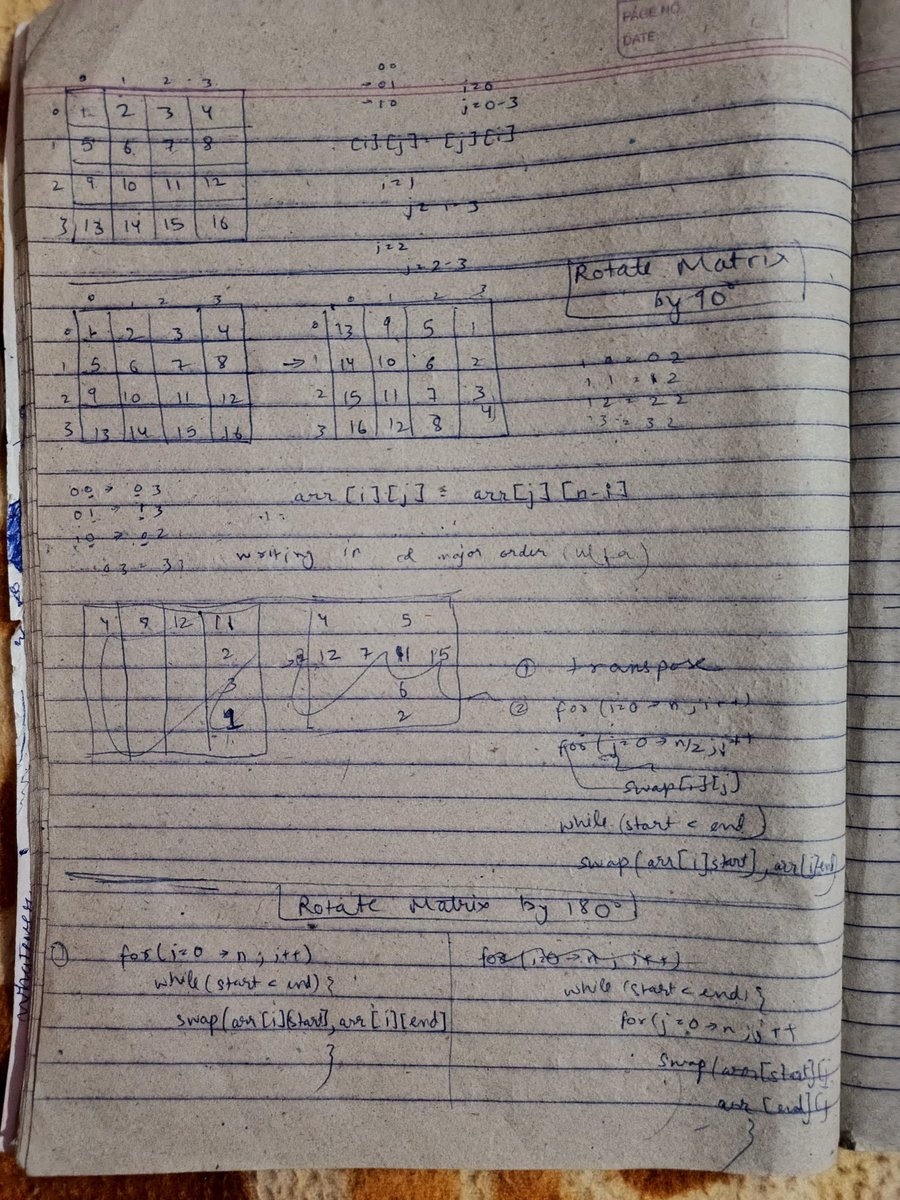 PAGE NO.
DATE:
0 0
0 1 2 3
→ 01 i=0
→ 10 j=0-3
0 1 2 3 4
[i][j] = [j][i]
1 5 6 7 8
i=1
2 9 10 11 12
j=1-3
3 13 14 15 16
i=2
j=2-3
Rotate Matrix
by 90°
0 1 2 3 0 1 2 3
0 1 2 3 4 0 13 9 5 1
1 5 6 7 8 → 1 14 10 6 2
2 9 10 11 12 2 15 11 7 3
3 13 14 15 16 3 16 12 8 4
1 0 = 0 2
1 1 = 1 2
1 2 = 2 2
1 3 = 3 2
00 → 03
01 → 13
10 → 02
03 = 33
arr[i][j] = arr[j][n-i]
writing in major order
4 8 12 11 4 5
2 12 7 11 15
3 6
1 2
① transpose
② for (i=0 → n, i++)
for (j=0 → n/2, j++
swap[i][j]
while (start < end)
swap(arr[i]start], arr[i]end
Rotate Matrix by 180°
① for (i=0 → n, i++)
while (start < end) {
swap(arr[i][start], arr[i][end]
}
for (i=0 → n, i++)
while (start < end) {
for (j=0 → n, j++
swap(arr[start][j
arr[end][j
}
whatever